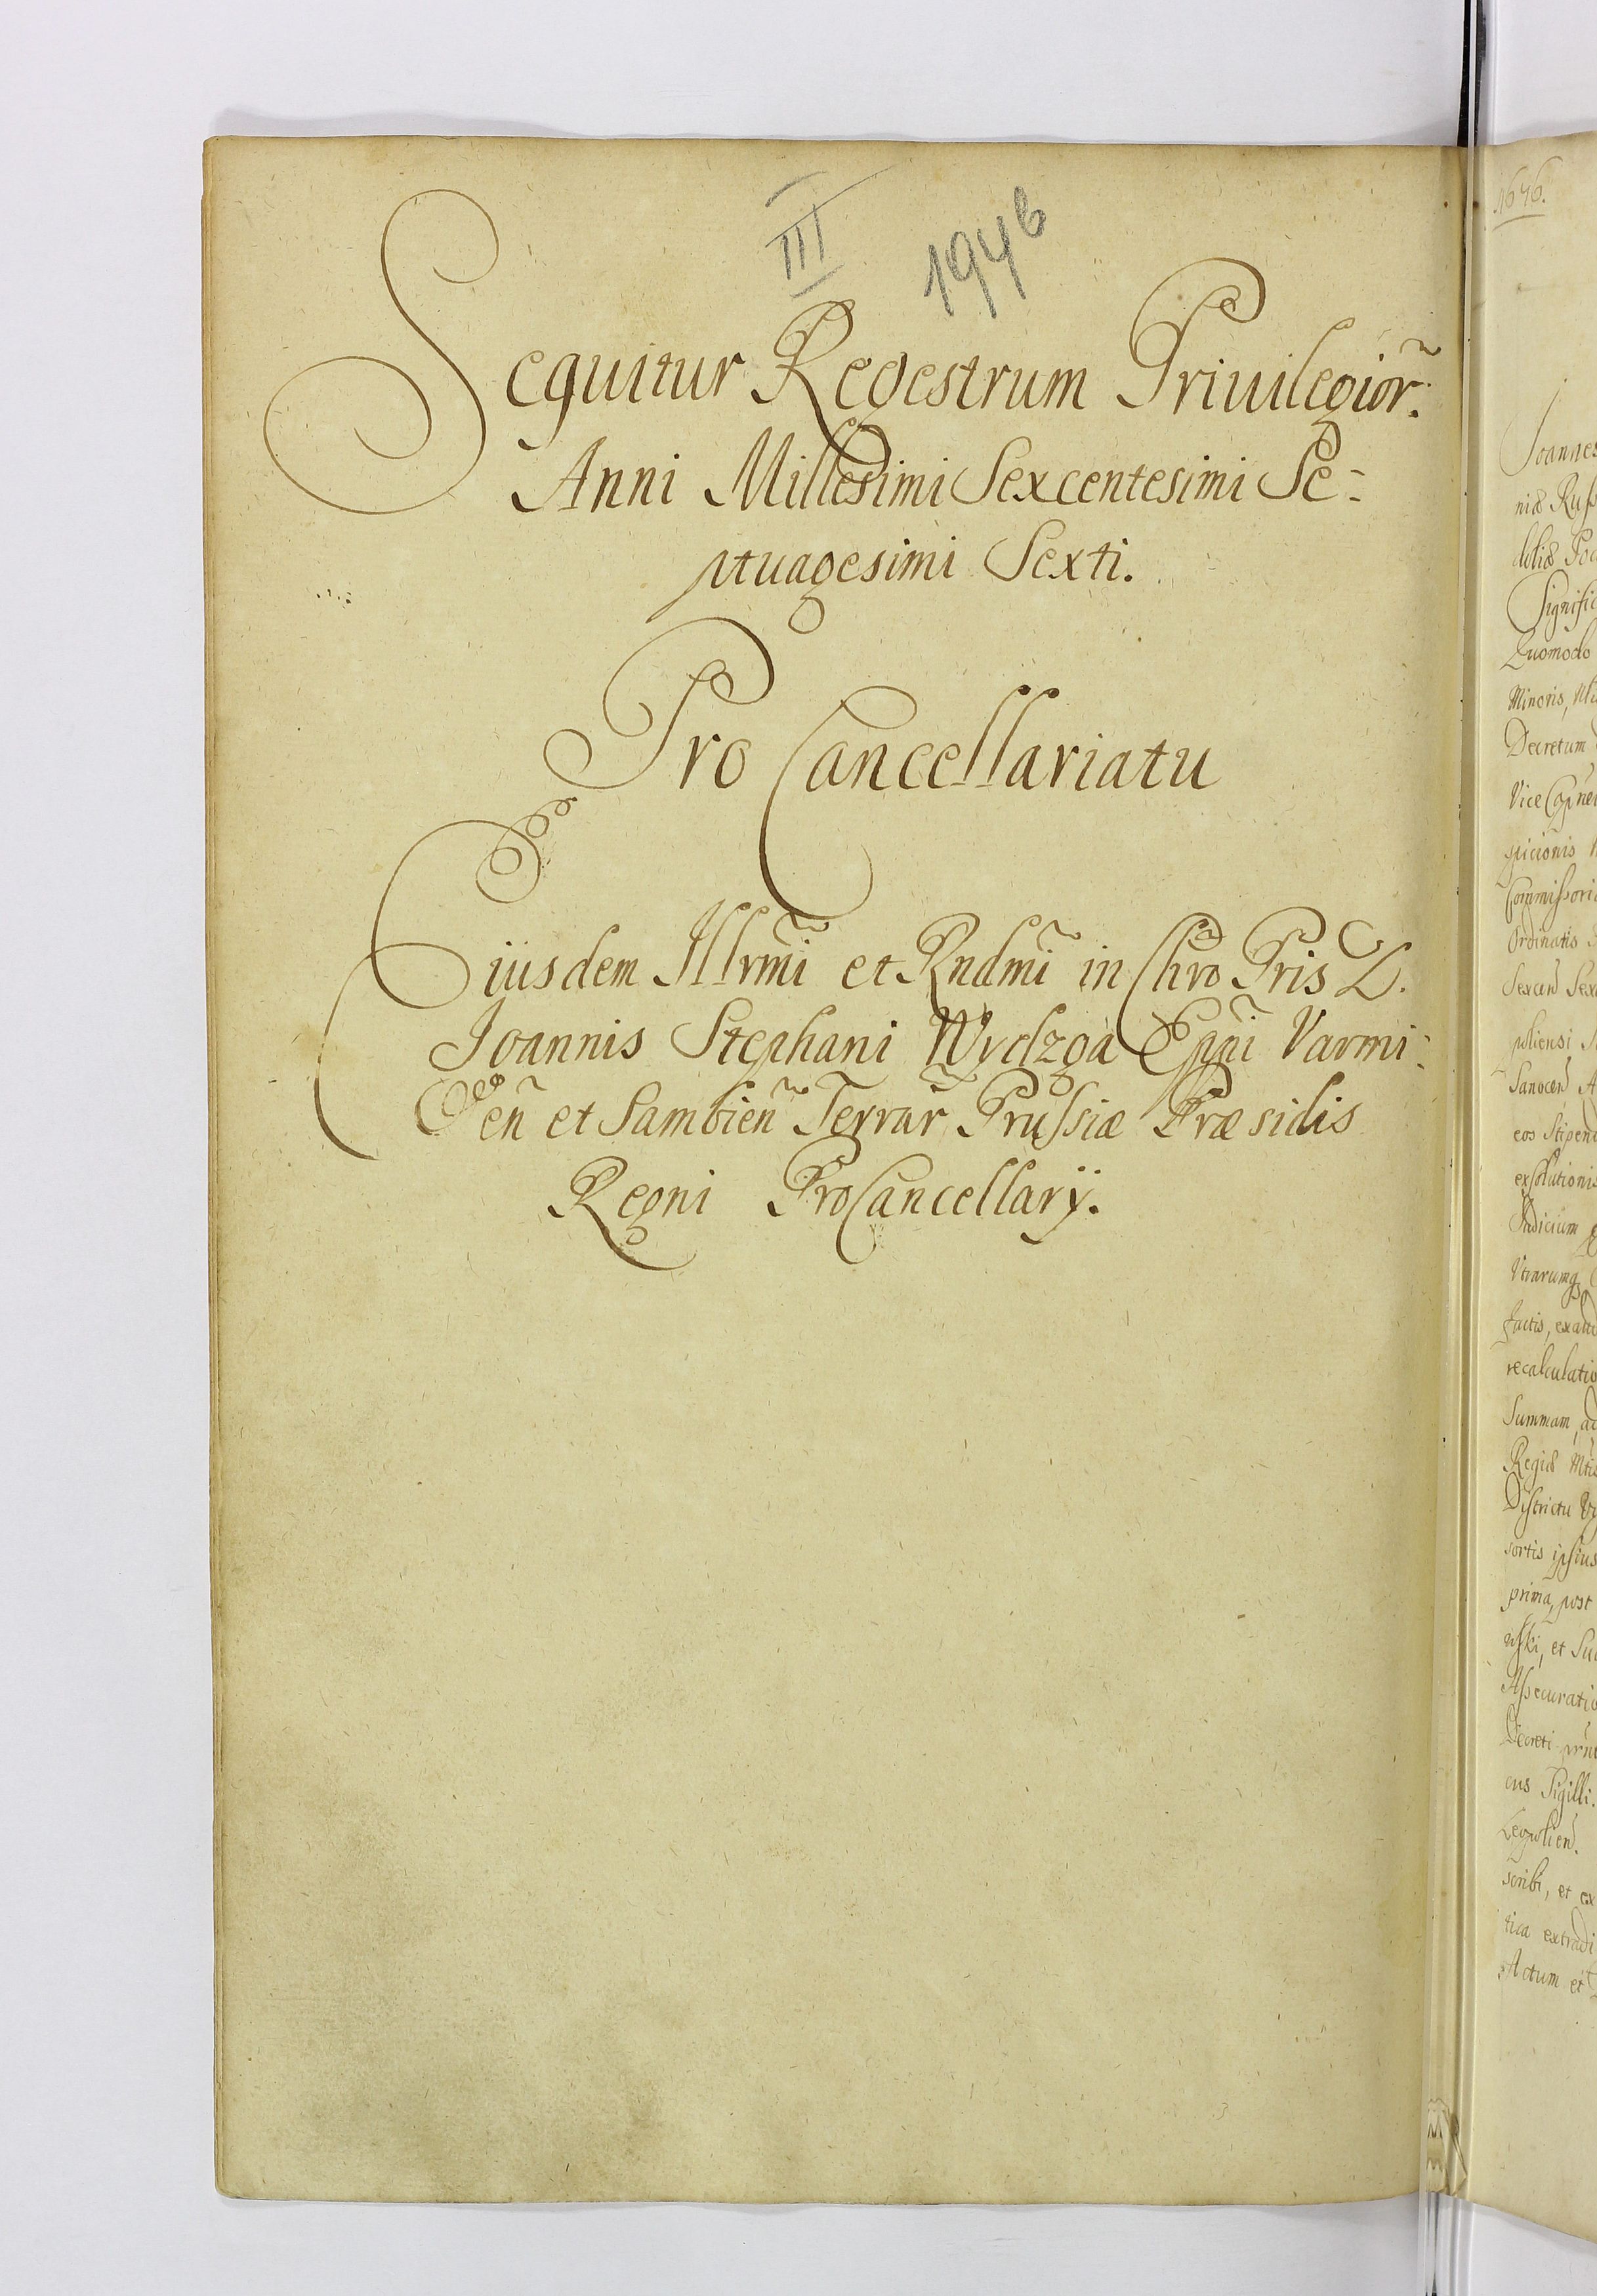 III 1946
Sequitur Regestrum Priuilegior̃.
Anni Millesimi Sexcentesimi Se-
ptuagesimi Sexti.
Pro Cancellariatu
Eiusdem Illrm̃i et Rndm̃i in Chro Pris D.
Joannis Stephani Wydzga Ep̃pi Varmi-
eñ et Sambieñ Terrar̃ Prussiæ Præsidis
Regni ProCancellarÿ.
1676.
Joannes
niæ Russ
doliæ Pod
Signific
Quomodo
Minoris,
Decretum
Vice Cap̃ne
picionis
Commissori
Ordinatis
Sexcen Sex
pliensi
Sanocen A
eos Stipend
exsolutionis
Indicium
Utrarumq
factis, exacte
recalculatio
Summam, ad
Regiæ Mtis
Districtu
sortis ipsius
prima, post
nski, et Suc
Assecuratio
Decreti prñt
cus Sigilli.
Leopolien.
scribi, et ex
tica extradi
Actum et